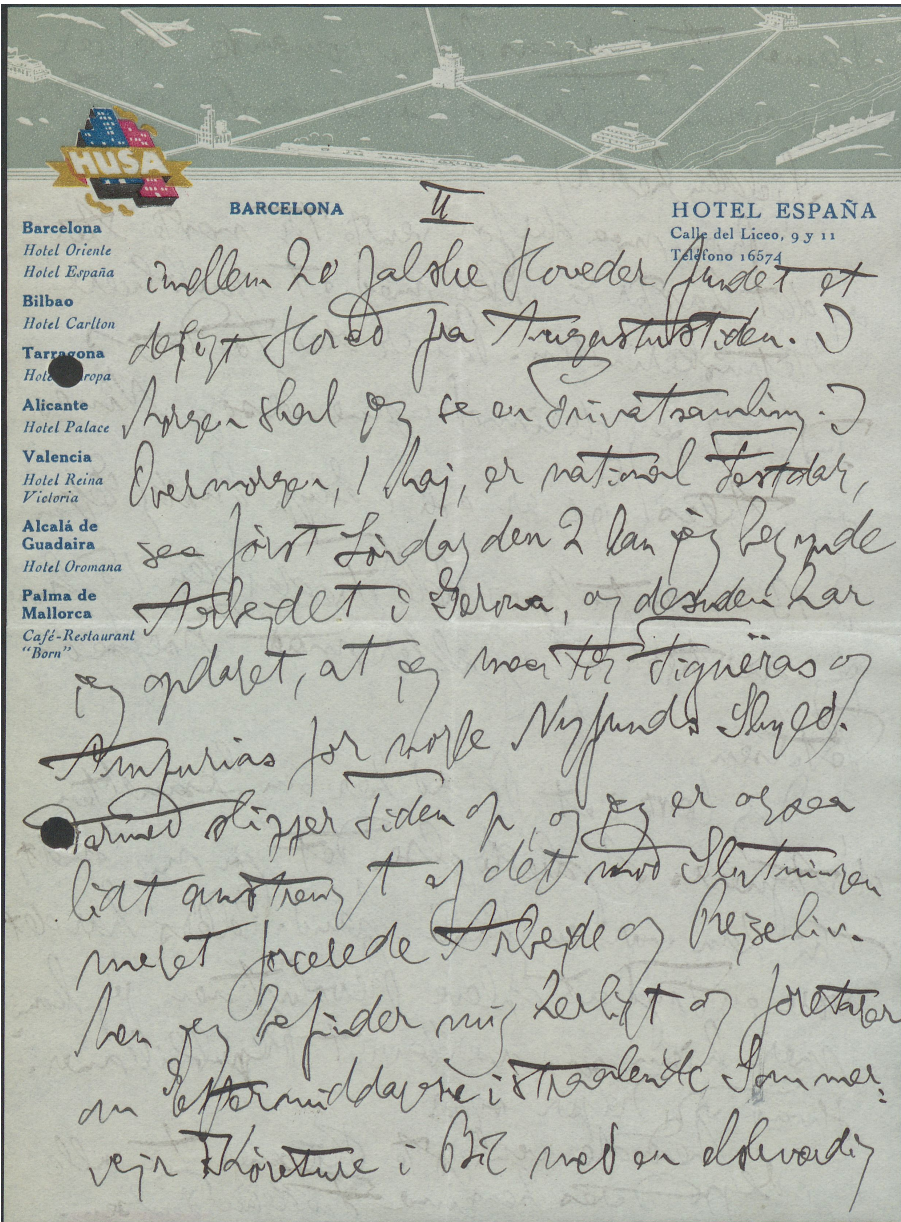 HUSA
BARCELONA
II
HOTEL ESPAÑA
Calle del Liceo, 9 y 11
Teléfono 16574
Barcelona
Hotel Oriente
Hotel España
Bilbao
Hotel Carlton
Tarragona
Hotel Europa
Alicante
Hotel Palace
Valencia
Hotel Reina
Victoria
Alcalá de
Guadaira
Hotel Oromana
Palma de
Mallorca
Café-Restaurant
"Born"
imellem 20 falske Hoveder fundet et
Hoved fra Augustustiden. I
Morgen skal jeg se en Privatsamling. I
Overmorgen, 1 Maj, er national Festdag,
saa först Söndag den 2 kan jeg begynde
Arbejdet i Gerona, og desuden har
jeg opdaget, at jeg maa til Figuëras og
Ampurias for nogle Nyfunds Skyld.
Dermed slipper Tiden op, og jeg er ogsaa
lidt anstrengt af det mod Slutningen
meget forcerede Arbejde og Rejseliv.
Men jeg befinder mig herligt og foretager
om Eftermiddagene i straalende Sommer-
vejr Köreture i Bil med en elskværdig